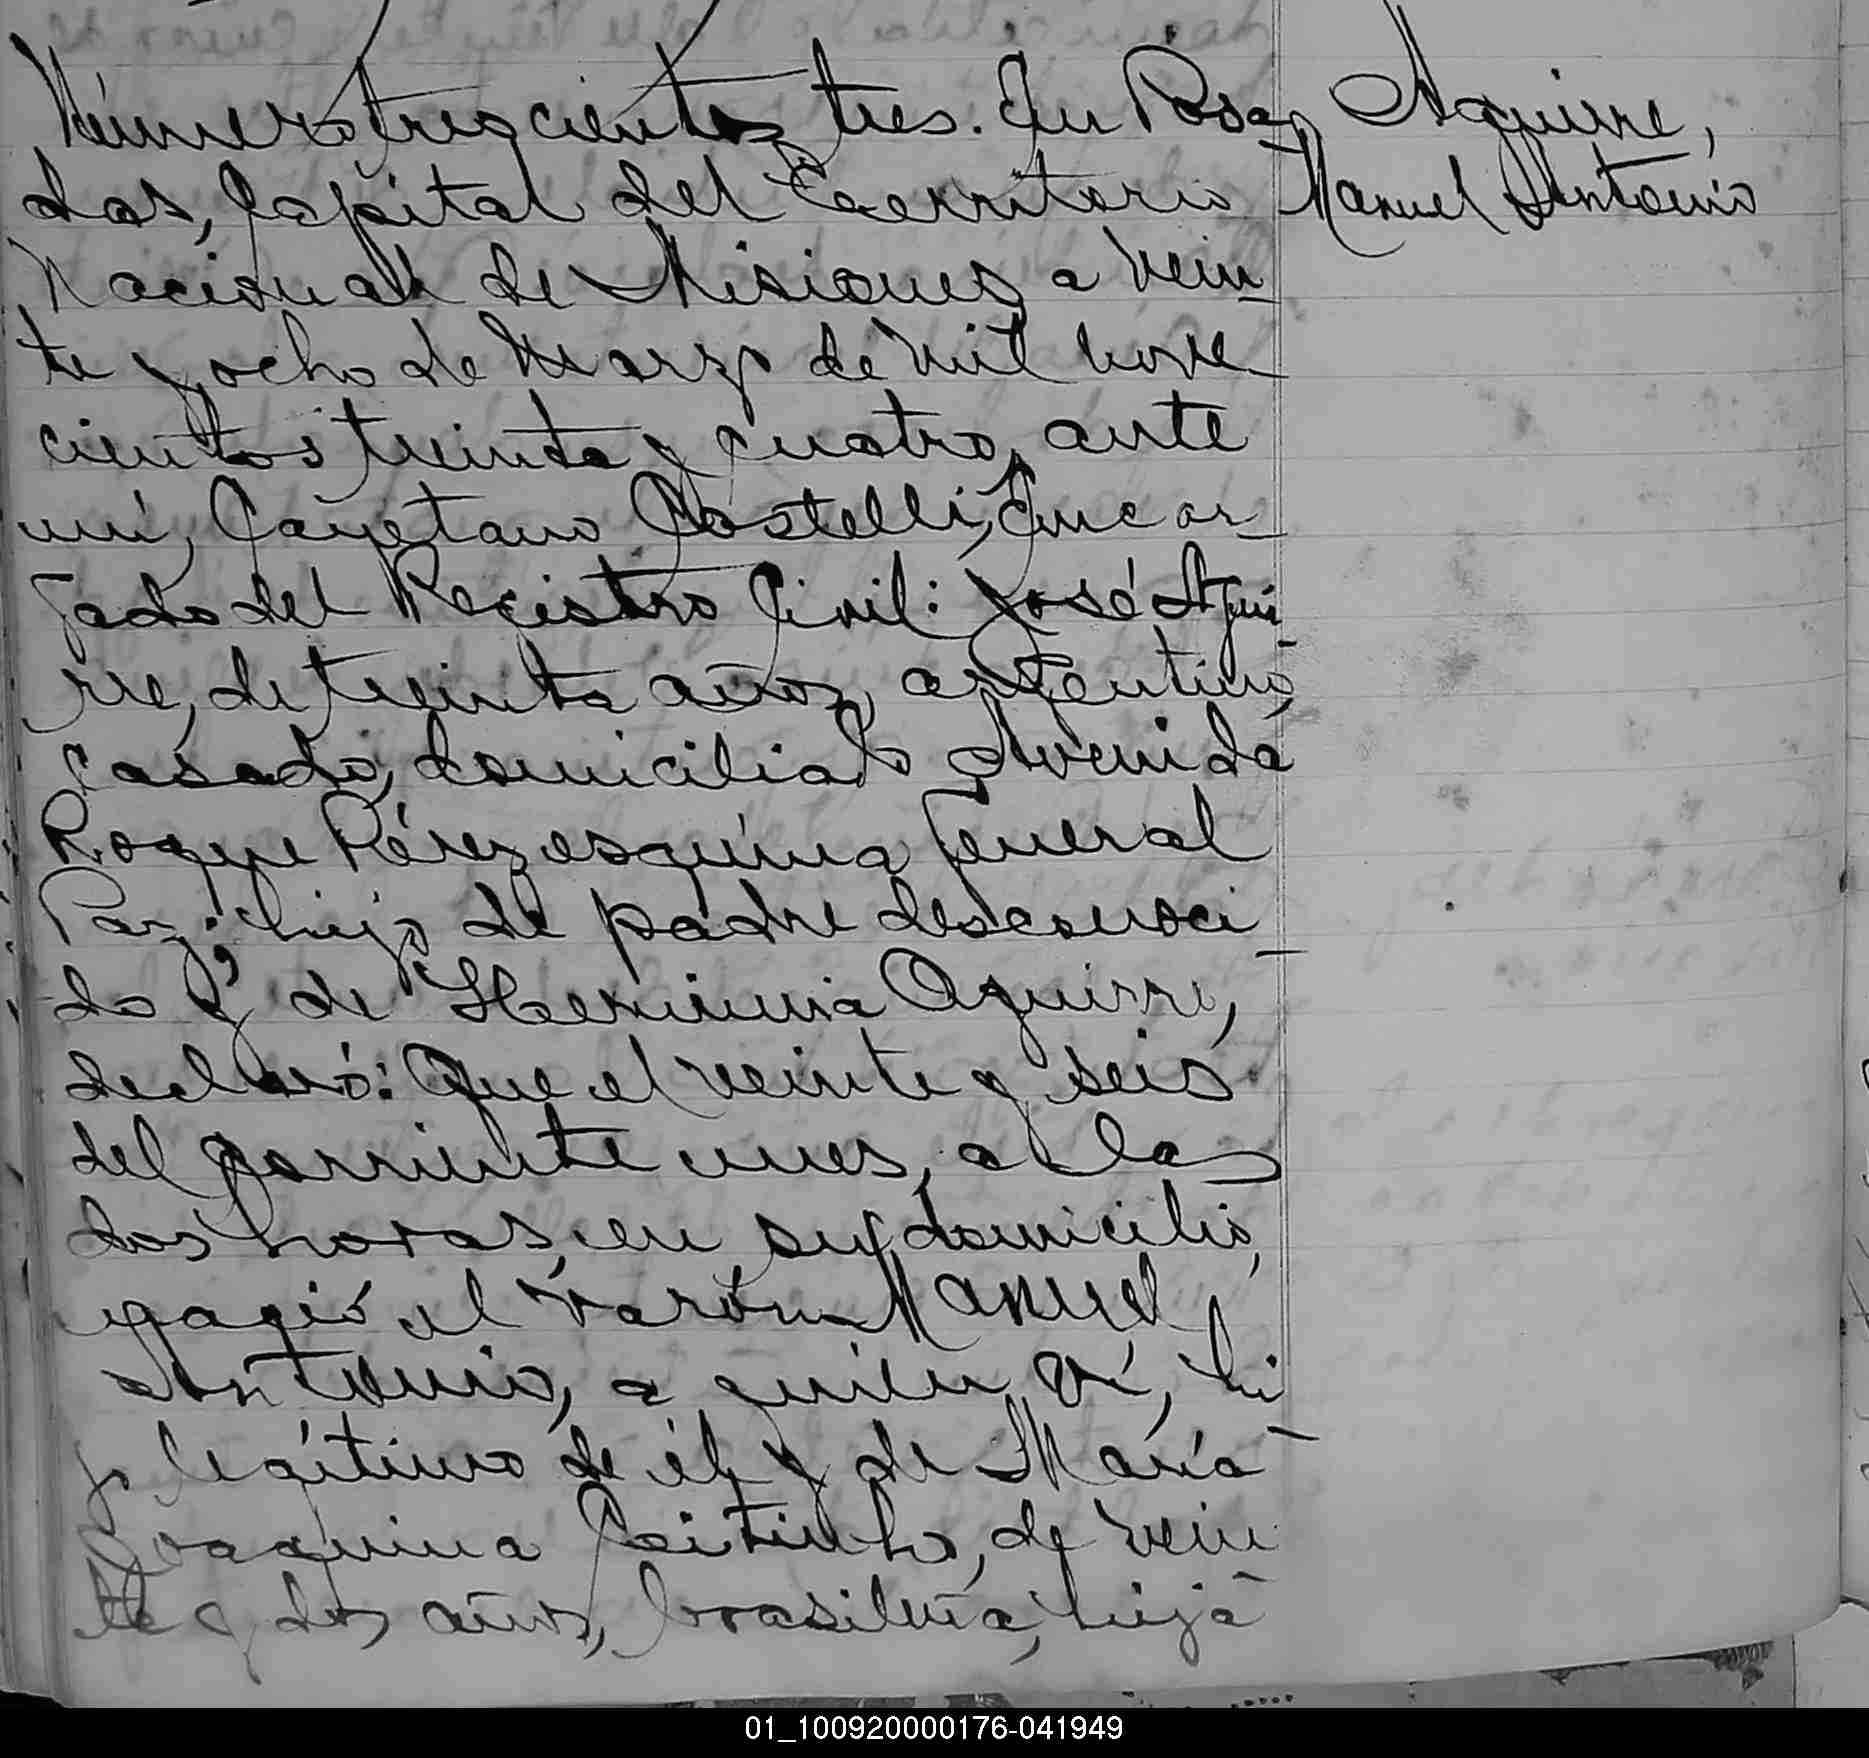 Número trescientos tres. En Posa-
das, Capital del Territorio
Nacional de Misiones, a vein-
te y ocho de Marzo de mil nove-
cientos treinta y cuatro, ante
mí, Cayetano Castelli, Encar-
gado del Registro Civil: José Agui-
rre, de treinta años, argentino,
casado, domiciliado Avenida
Roque Pérez esquina General
Paz; hijo de padre desconoci-
do y de Herminia Aguirre,
declaró: Que el veinte y seis
del corriente mes, a las
dos horas, en su domicilio,
nació el varón Manuel
Antonio, a quien vi, hi-
jo legítimo de él y de María
Joaquina Coitinho, de vein-
te y dos años, brasileña, hija
Aguirre,
Manuel Antonio
01_100920000176-041949